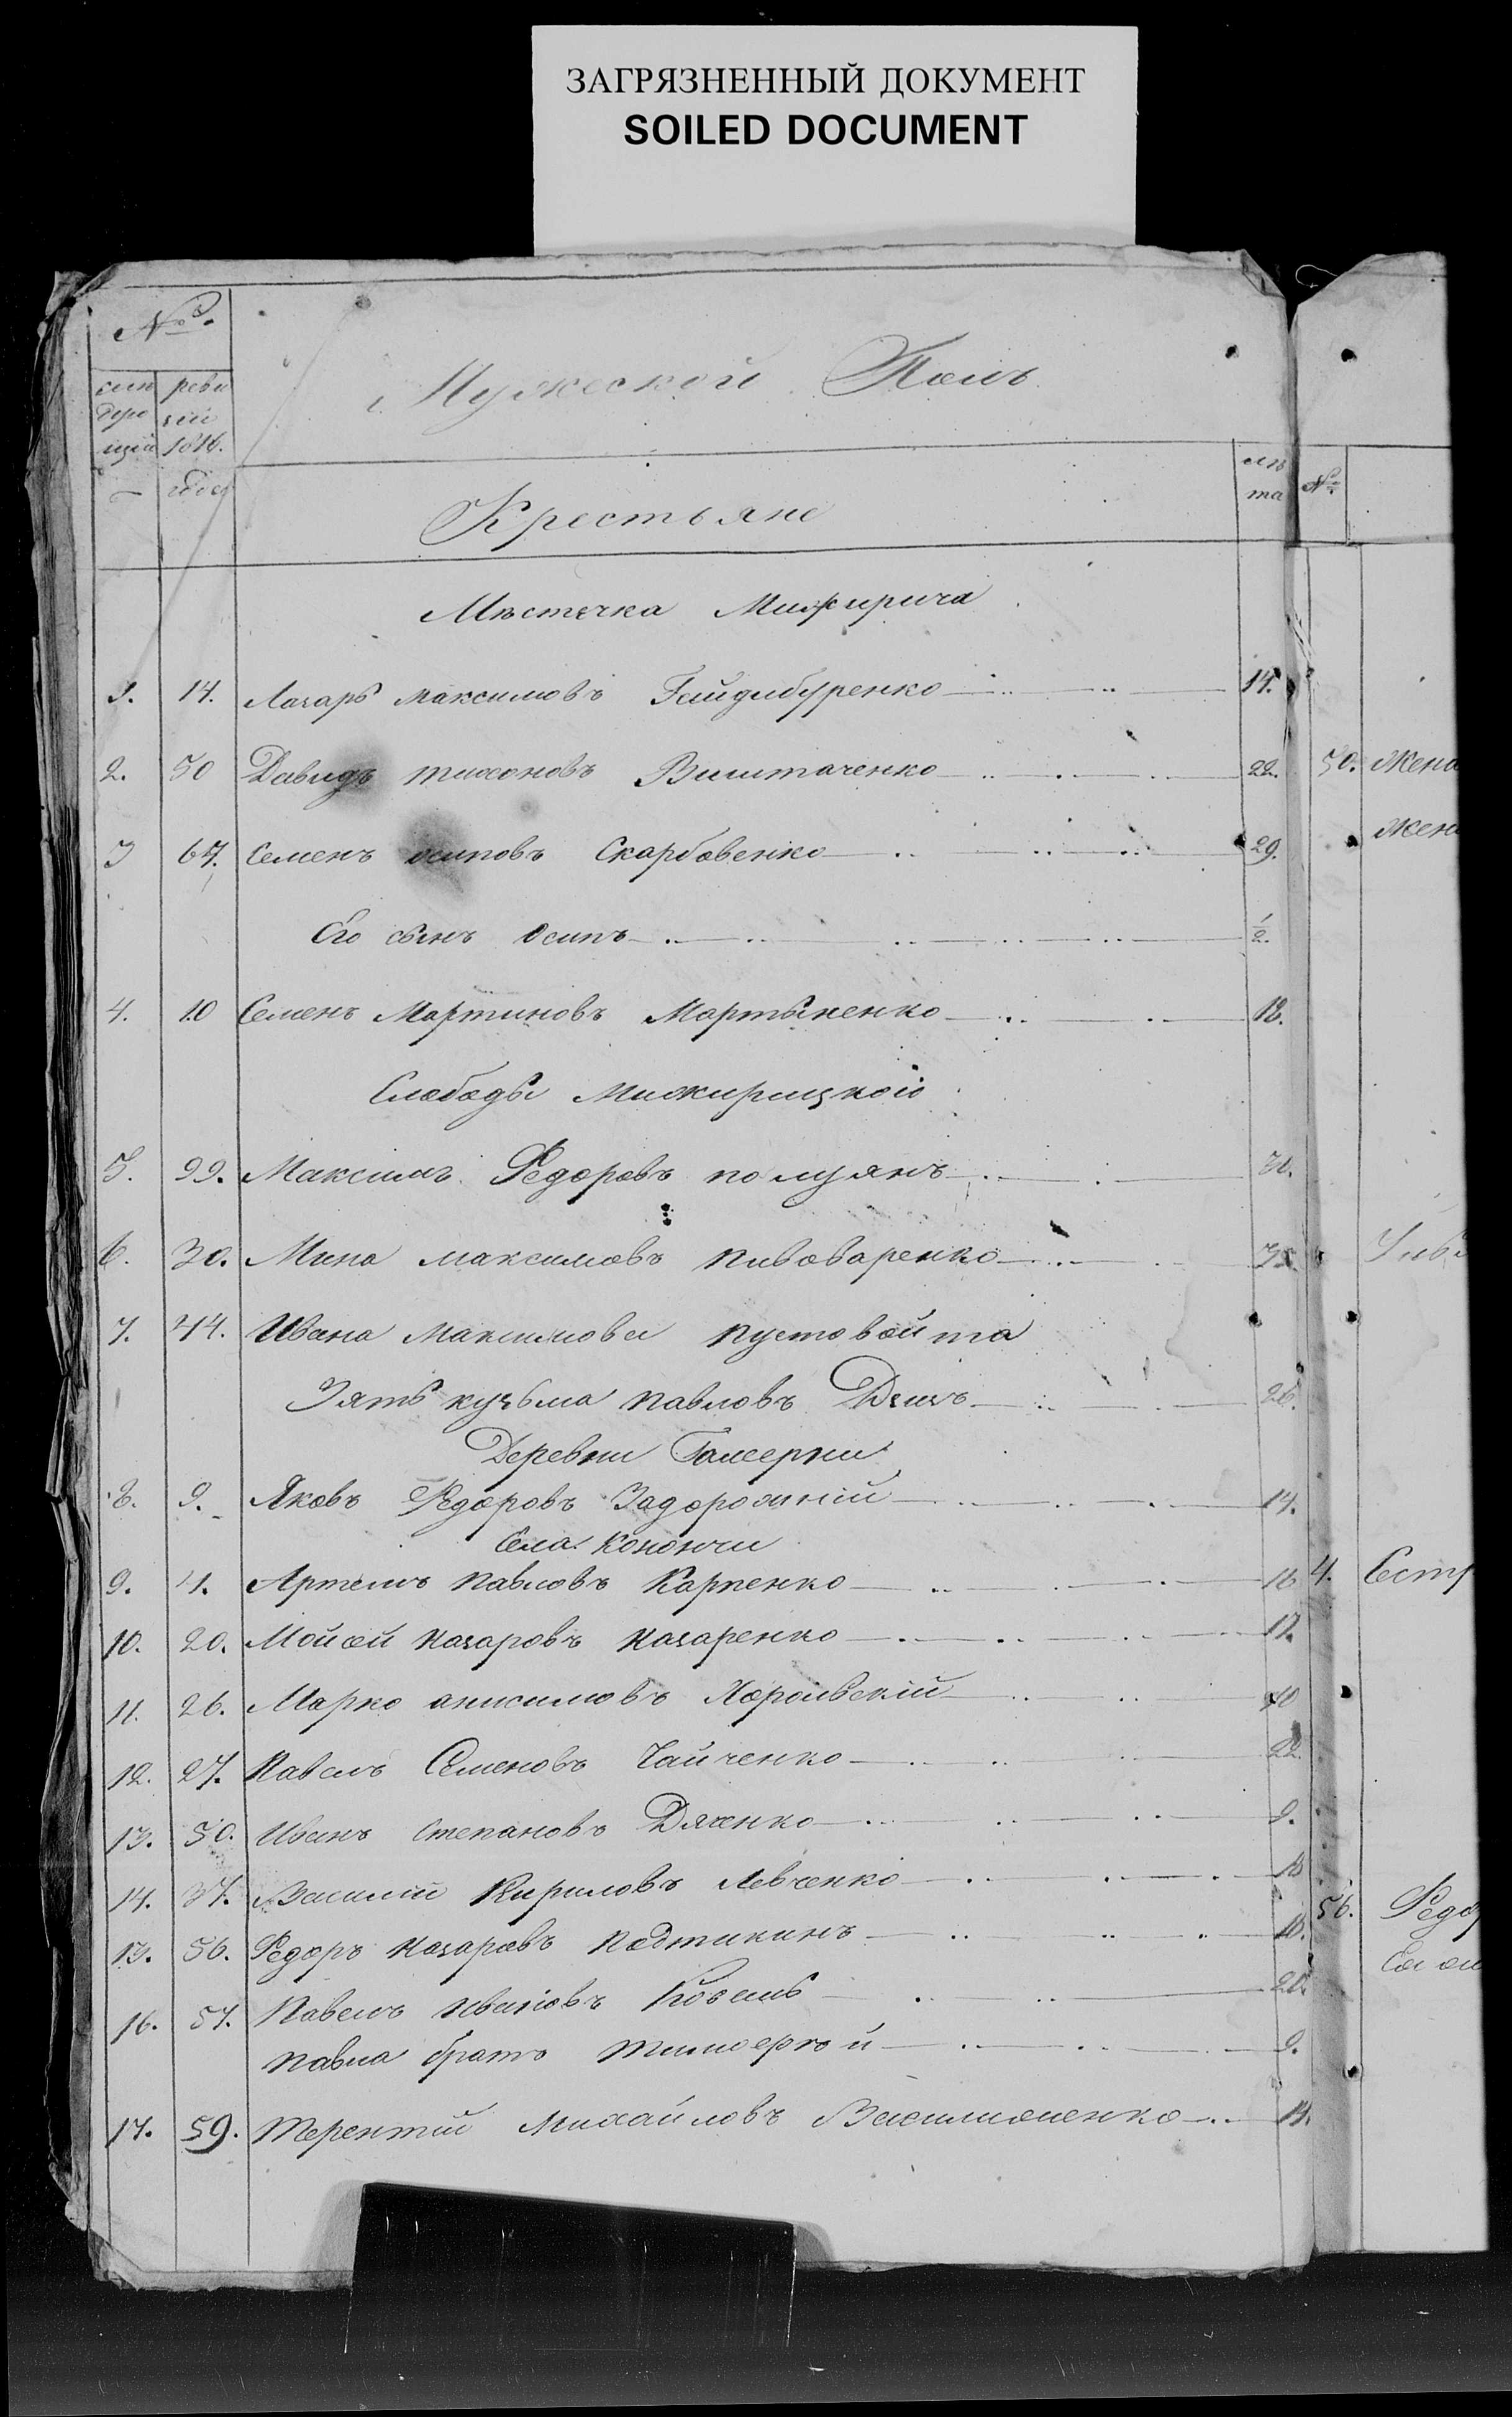 ЗАГРЯЗНЕННЫЙ ДОКУМЕНТ
SOILED DOCUMENT
№
реви
зіи
1816.
года
Мужеской Полъ
лѣ
та
№
Крестьяне
Мѣстечка Мижирича
1. 14. Лазарь Максимовъ Гейдибуренко 14.
2. 50 Давидъ Тихоновъ Вишташенко 22. 50. Жена
3 67. Семенъ Осиповъ Скарбовенко 29. Жен
Его сынъ Осипъ 1/2.
4. 10 Семенъ Мартиновъ Мартыненко 18.
Слободы Мижирицкой
5. 29. Максимъ Федоровъ Полуянъ 30.
6. 30. Мина Максимовъ Пивоваренко 35
7. 44. Ивана Максимова Пустовойта
Зять Кузьма Павловъ 26.
Деревни
8. 9. Яковъ Федоровъ Задорожній 14.
Села Конончи
9. 4. Артемъ Павловъ Карпенко 16 4. Сестр
10. 20. Мойсей Назаровъ Назаренко 17.
11. 26. Марко Анисимовъ Хорольскій 40
12. 27. Павелъ Семеновъ Чайченко 22.
13. 30. Иванъ Степановъ Дяченко 9.
14. 37. Василій Кириловъ Левченко 18
15. 56. Федоръ Назаровъ 18. 56. Федо
16. 57. Павелъ Ивановъ Ковель 20.
Павла братъ Тимофей 9.
17. 59. Терентій Михайловъ Василишенко 14.